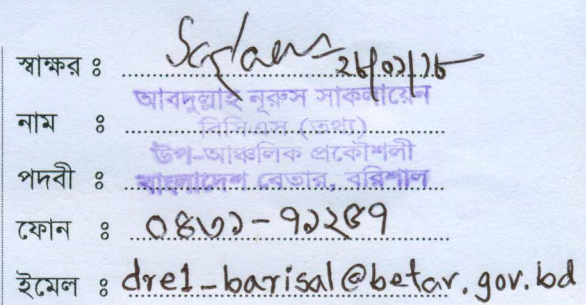 স্বাক্ষর ঃ
নাম ঃ আবদুল্লাহ নূরুস সাকলায়েন
বিসিএস (তথ্য)
পদবী ঃ উপ-আঞ্চলিক প্রকৌশলী
বাংলাদেশ বেতার, বরিশাল
ফোন ঃ ০৪৩১-৭১২৫৭
ইমেল ঃ dre1_barisal@betar.gov.bd